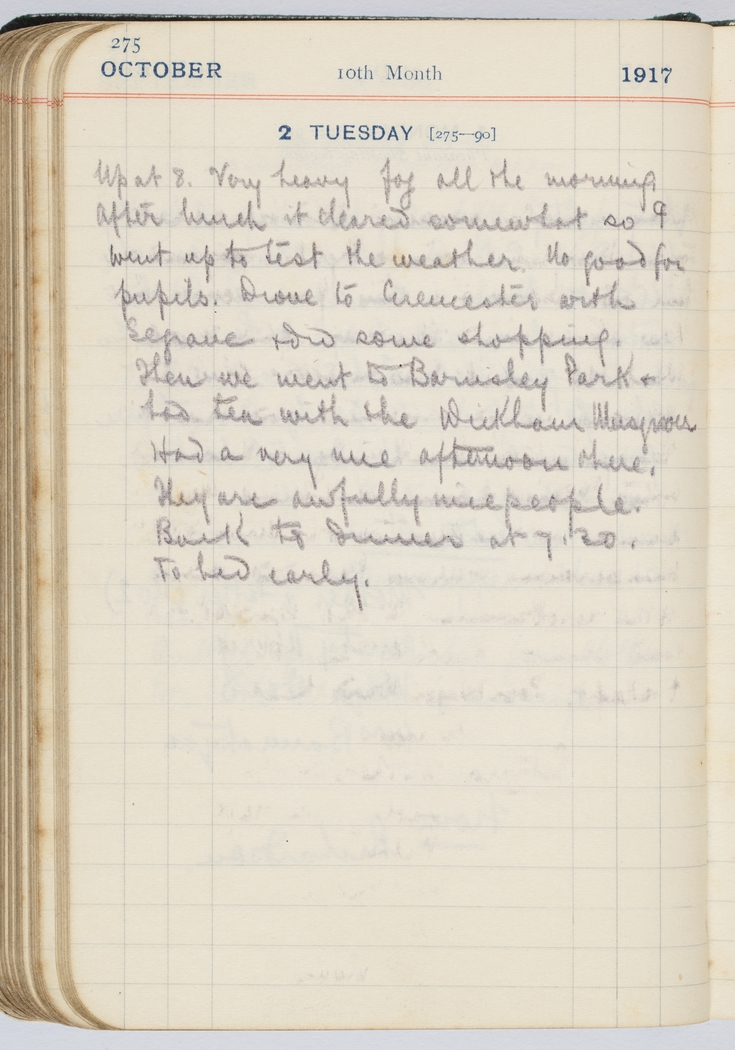 275
OCTOBER 10th Month 1917
2 TUESDAY [275—90]
Up at 8. Very heavy fog all the morning
After lunch it cleared somewhat so I
went up to test the weather. No good for
pupils. Drove to Cirencester with
Segrave & did some shopping.
Then we went to Barnsley Park &
had tea with the Wickham Musgraves
Had a very nice afternoon there.
They are awfully nice people.
Back to dinner at 7.30.
To bed early.